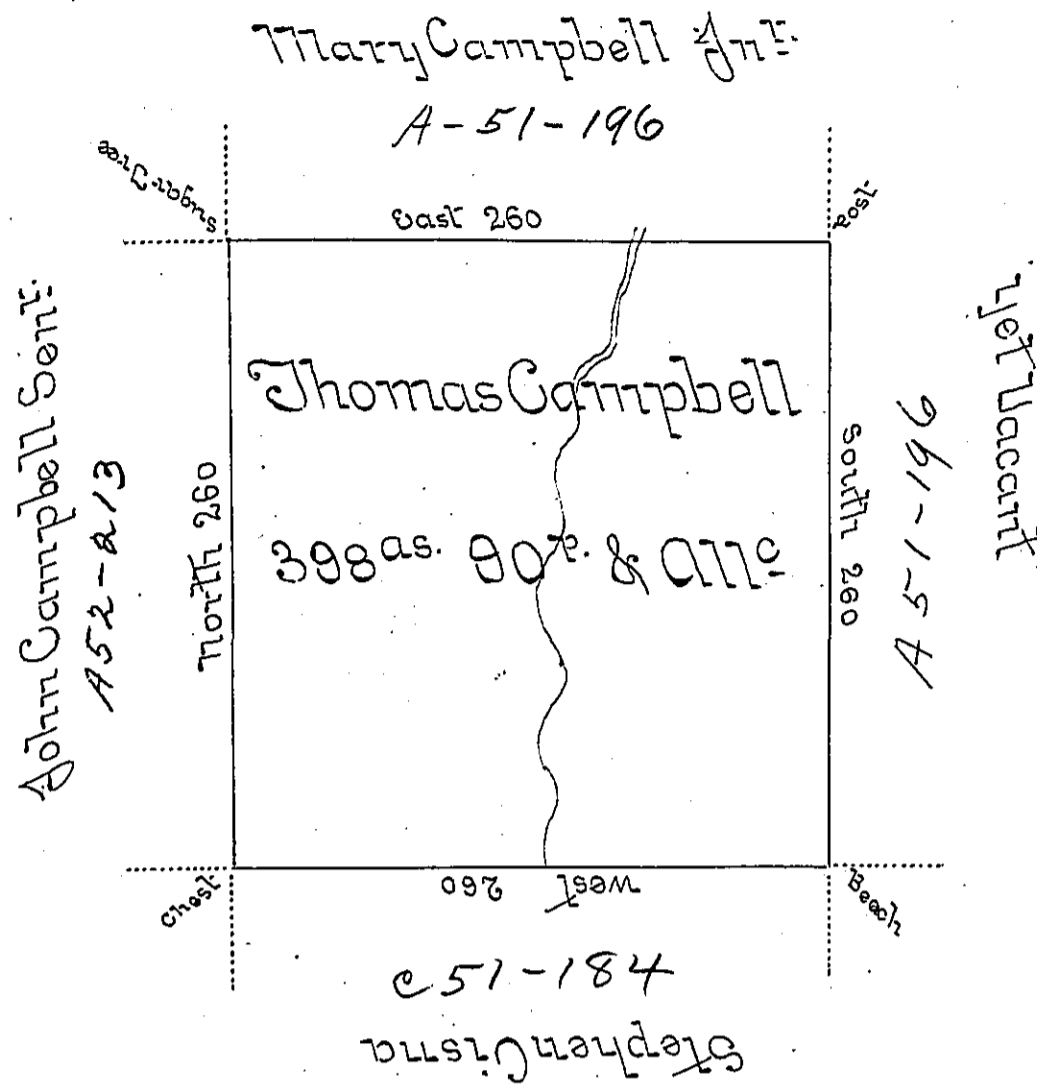 Mary Campbell Junr.
A-51-196
Sugar Tree
Post
East 260
John Campbell Senr.
A52-213
North 260
Thomas Campbell
398 as. 90 p. & Allc
South 260
A 51-196
yet Vacant
Chest
West 260
Beech
C 51-184
Stephen Cisna